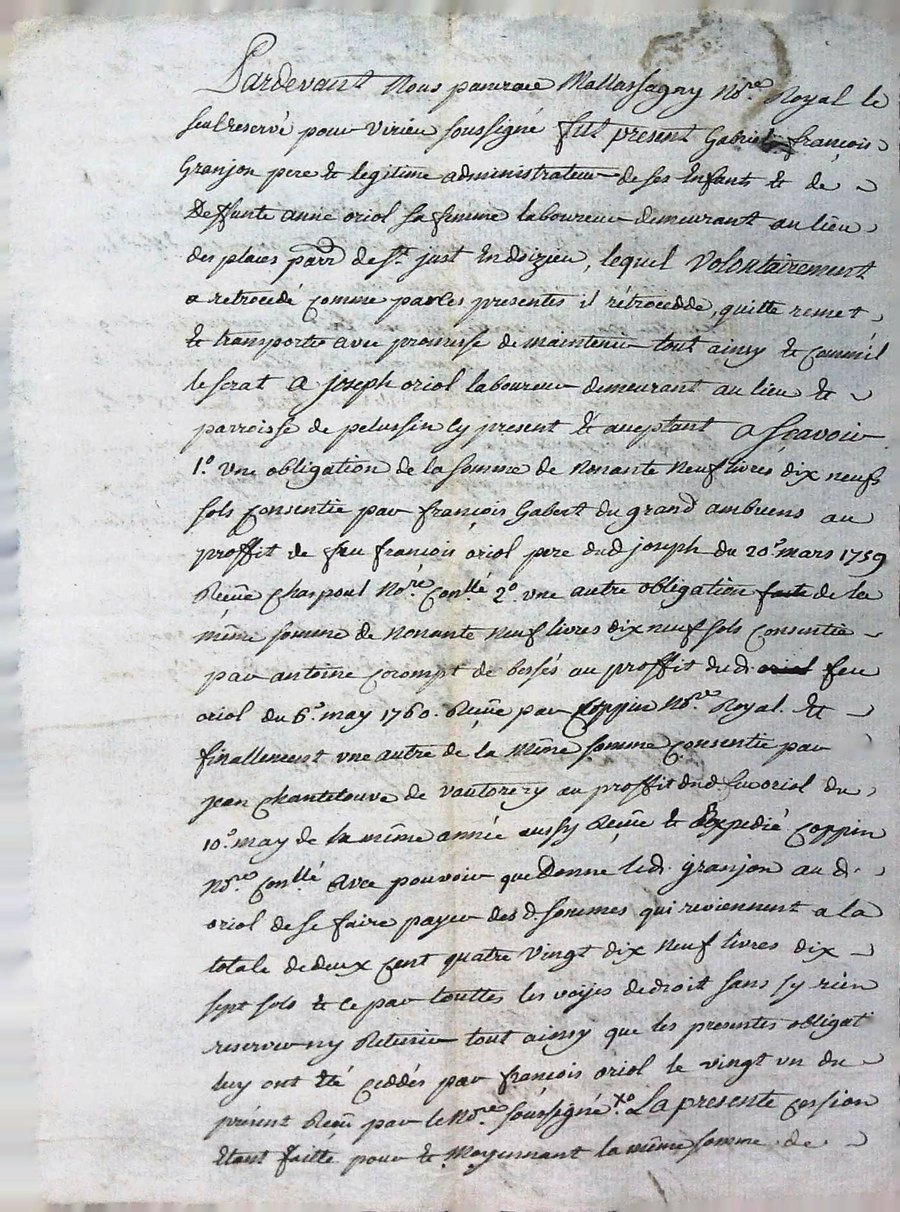 Pardevant Nous pancrace Mallassagny No.re Royal le
seul reservé pour virieu soussigné fut present Gabriel françois
Granjon pere & legitime administrateur de ses Enfants & de
Deffunte anne oriol sa femme laboureur demeurant au lieu
des places parr de St. just En doizieu, lequel Volontairement
a retrocedé comme par les presentes il rétrocedde, quitte remet
& transporte avec promesse de maintenir tout ainsy & comm'il
le serat A joseph oriol laboureur demeurant au lieu &
parroisse de pelussin Cy present & aceptant a Sçavoir
1.º vne obligation de la somme de Nonante Neuf livres dix neufs
sols Consentie par françois Gabert du grand ambuens au
proffit de feu françois oriol pere dud joseph du 20.e mars 1759
Reçüe Chaspoul No.re Con.llé 2.º vne autre obligation faite de la
même somme de Nonante Neuf livres dix neuf sols Consentie
par antoine Corompt de bessés au proffit dud. oriol feu
oriol du 6.e may 1760. Reçüe par Coppin No.re Royal. Et
finallement vne autre de la même somme Consentie par
jean Chantelouve de vautorezy au proffit dud. feu oriol du
10.e may de la même année aussy Reçüe & Expedié Coppin
No.re Con.llé Avec pouvoir que Donne led. granjon au d.
oriol de se faire payer des d. sommes qui reviennent a la
totale de deux Cent quatre vingt dix Neuf livres dix
sept sols & ce par touttes les voyes de droit sans sy rien
reserver ny Retenir tout ainsy que les presentes obligat
luy ont été Ceddés par françois oriol le vingt vn du
présent Reçu par le No.re soussigné Xº La presente Cession
Etant faitte pour & Moyennant la même somme de